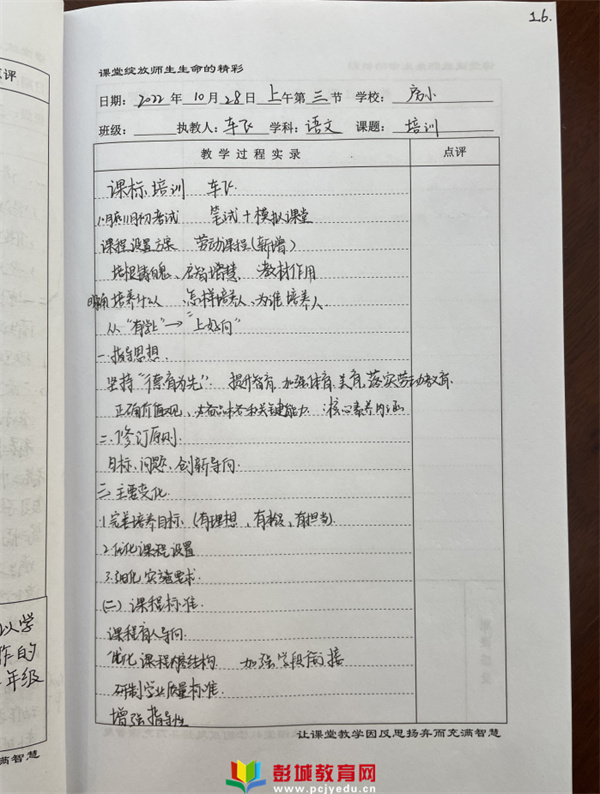 16.
课堂绽放师生生命的精彩
日期：2022年10月28日上午第三节 学校：房小
班级： 执教人：车飞 学科：语文 课题：培训
教学过程实录 点评
课标培训 车飞
初考试 笔试+模拟课堂
课程设置方案 劳动课程(新增)
培根铸魂、启智增慧 教材作用
明确培养什么、怎样培养人、为谁培养人
从“有学上”→“上好学”
一.指导思想
坚持“德育为先”. 提升智育 加强体育、美育、落实劳动教育
正确价值观、必备品格和关键能力 核心素养内涵
二.修订原则
目标、问题、创新导向
三.主要变化
1.完善培养目标 (有理想、有本领、有担当)
2.优化课程设置
3.细化实施要求
(二)课程标准
课程育人导向
优化课程结构 加强学段衔接
研制学业质量标准
增强指导性
让课堂教学因反思扬弃而充满智慧
点评
以学
作的
年级
满智慧
彭城教育网
www.pcjyedu.cn